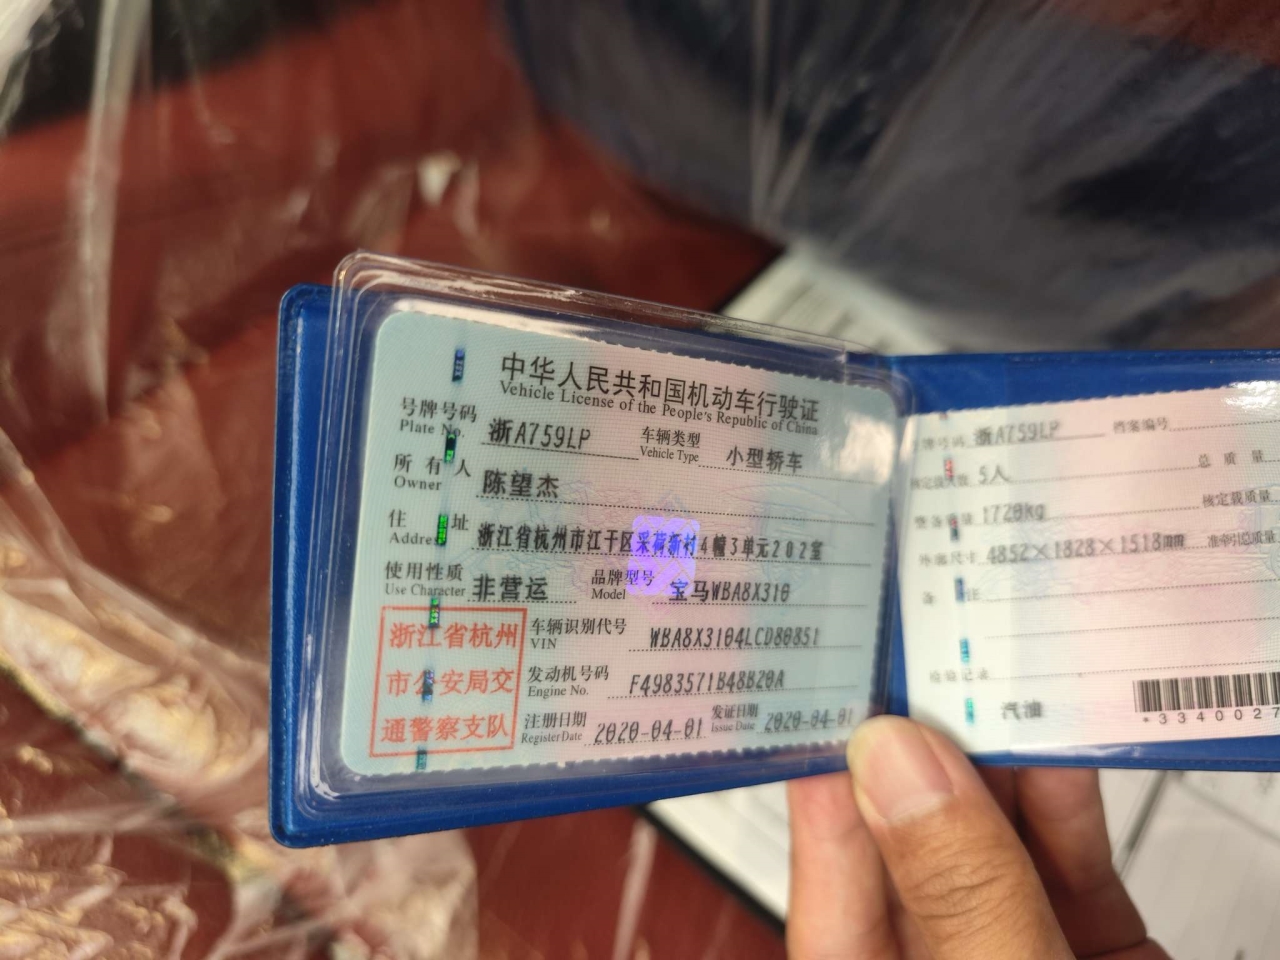 中华人民共和国机动车行驶证
Vehicle License of the People's Republic of China
号牌号码 浙A759LP 车辆类型 小型轿车
Plate No. Vehicle Type
所有人 陈望杰
Owner
住址 浙江省杭州市江干区采荷新村4幢3单元202室
Address
使用性质 非营运 品牌型号 宝马WBA8X310
Use Character Model
浙江省杭州
市公安局交
通警察支队
车辆识别代号 WBA8X3104LCD80851
VIN
发动机号码 F4983571B48B20A
Engine No.
注册日期 2020-04-01 发证日期 2020-04-01
Register Date Issue Date
号牌号码 浙A759LP 档案编号
核定载人数 5人 总质量
整备质量 1720kg 核定载质量
外廓尺寸 4852×1828×1518mm 准牵引总质量
备注
检验记录
汽油
*3340027